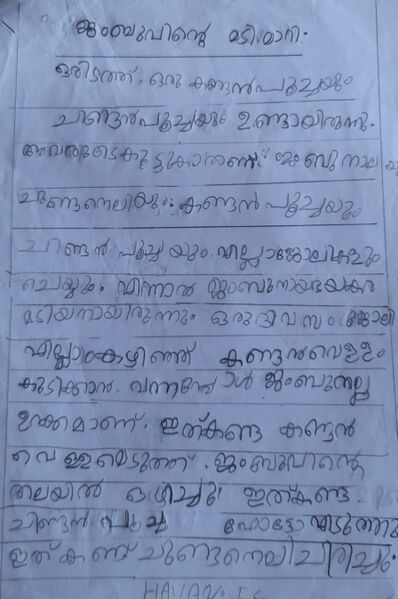 ജംബുവിന്റെ മടി മാറി.
ഒരിടത്ത്. ഒരു കണ്ടൻപൂച്ചയും
ചിണ്ടൻപൂച്ചയും ഉണ്ടായിരുന്നു.
അവരുടെകൂട്ടുകാരാണ് ജംബുനായ
ചുണ്ടനെലിയും. കണ്ടൻ പൂച്ചയും
ചിണ്ടൻ പൂച്ച യും എല്ലാജോലികളും
ചെയ്യും. എന്നാൽ ജംബുനായഭയങ്കര
മടിയനായിരുന്നു. ഒരുദിവസം ജോലി
എല്ലാംകഴിഞ്ഞ് കണ്ടൻവെള്ളം
കുടിക്കാൻ വന്നപ്പോൾ ജംബുനല്ല
ഉറക്കമാണ്. ഇത്കണ്ട കണ്ടൻ
വെള്ളമെടുത്ത്. ജംബുവിന്റെ
തലയിൽ ഒഴിച്ചു. ഇത്കണ്ട
ചിണ്ടൻ പൂച്ച ഫോട്ടോ എടുത്തു
ഇത് കണ്ട് ചുണ്ടനെലിചിരിച്ചു.